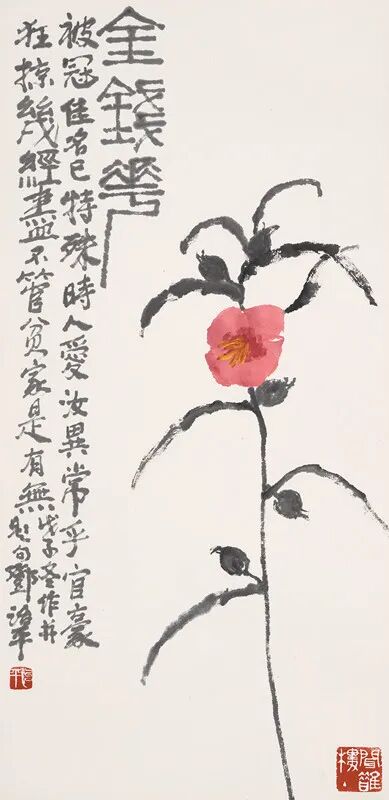 金錢華
被冠佳名已特殊時人愛汝異常乎官豪
狂掠幾經盡不管貧家是有無戊子冬作并
題句鄧